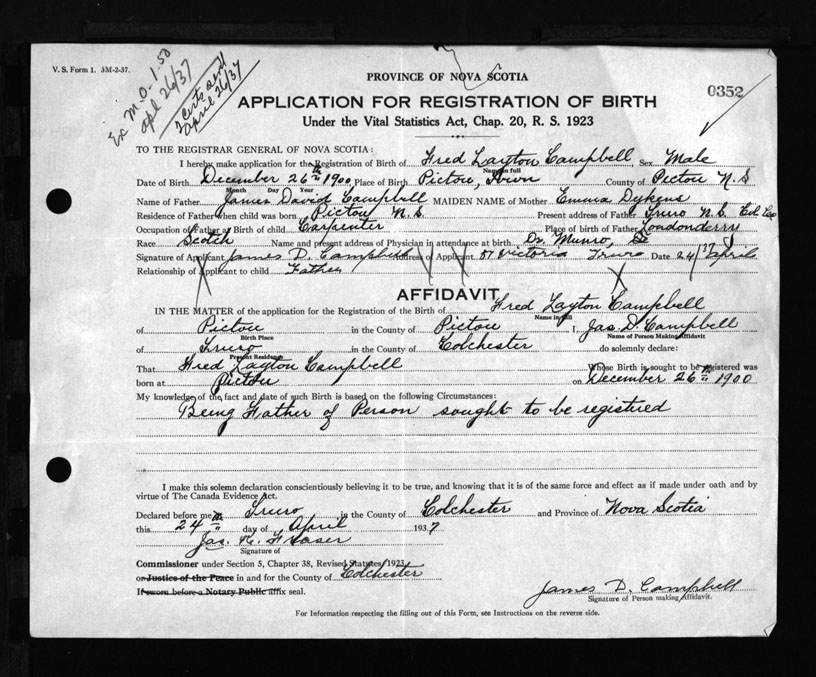 V. S. Form 1. 3M-2-37.
Ex M.O. 1.50
Apl 26/37
2 certs sent
April 26/37
PROVINCE OF NOVA SCOTIA
0352
APPLICATION FOR REGISTRATION OF BIRTH
Under the Vital Statistics Act, Chap. 20, R. S. 1923
TO THE REGISTRAR GENERAL OF NOVA SCOTIA:
I hereby make application for the Registration of Birth of Fred Layton Campbell, Sex Male
Name in full
Date of Birth December 26th 1900 Place of Birth Pictou, Town County of Pictou N.S
Month Day Year
Name of Father James David Campbell MAIDEN NAME of Mother Emma Dykens
Residence of Father when child was born Pictou N.S. Present address of Father Truro N.S. Col Co
Occupation of Father at Birth of child Carpenter Place of birth of Father Londonderry
Race Scotch Name and present address of Physician in attendance at birth Dr. Munro,
Signature of Applicant James D. Campbell Address of Applicant 57 Victoria Truro Date 24/37 April
Relationship of Applicant to child Father
AFFIDAVIT
IN THE MATTER of the application for the Registration of Birth of Fred Layton Campbell
Name in full
of Pictou in the County of Pictou I, Jas. D. Campbell
Birth Place Name of Person Making Affidavit
of Truro in the County of Colchester do solemnly declare:
Present Residence
That Fred Layton Campbell Whose Birth is sought to be registered was
born at Pictou on December 26th 1900
My knowledge of the fact and date of such Birth is based on the following Circumstances:
Being Father of Person sought to be registired
I make this solemn declaration conscientiously believing it to be true, and knowing that it is of the same force and effect as if made under oath and by
virtue of The Canada Evidence Act.
Declared before me at Truro in the County of Colchester and Province of Nova Scotia
this 24th day of April 1937
Jas. K. Fraser
Signature of
Commissioner under Section 5, Chapter 38, Revised Statutes, 1923
or Justice of the Peace in and for the County of Colchester
If sworn before a Notary Public affix seal.
James D. Campbell
Signature of Person making Affidavit.
For Information respecting the filling out of this Form, see Instructions on the reverse side.